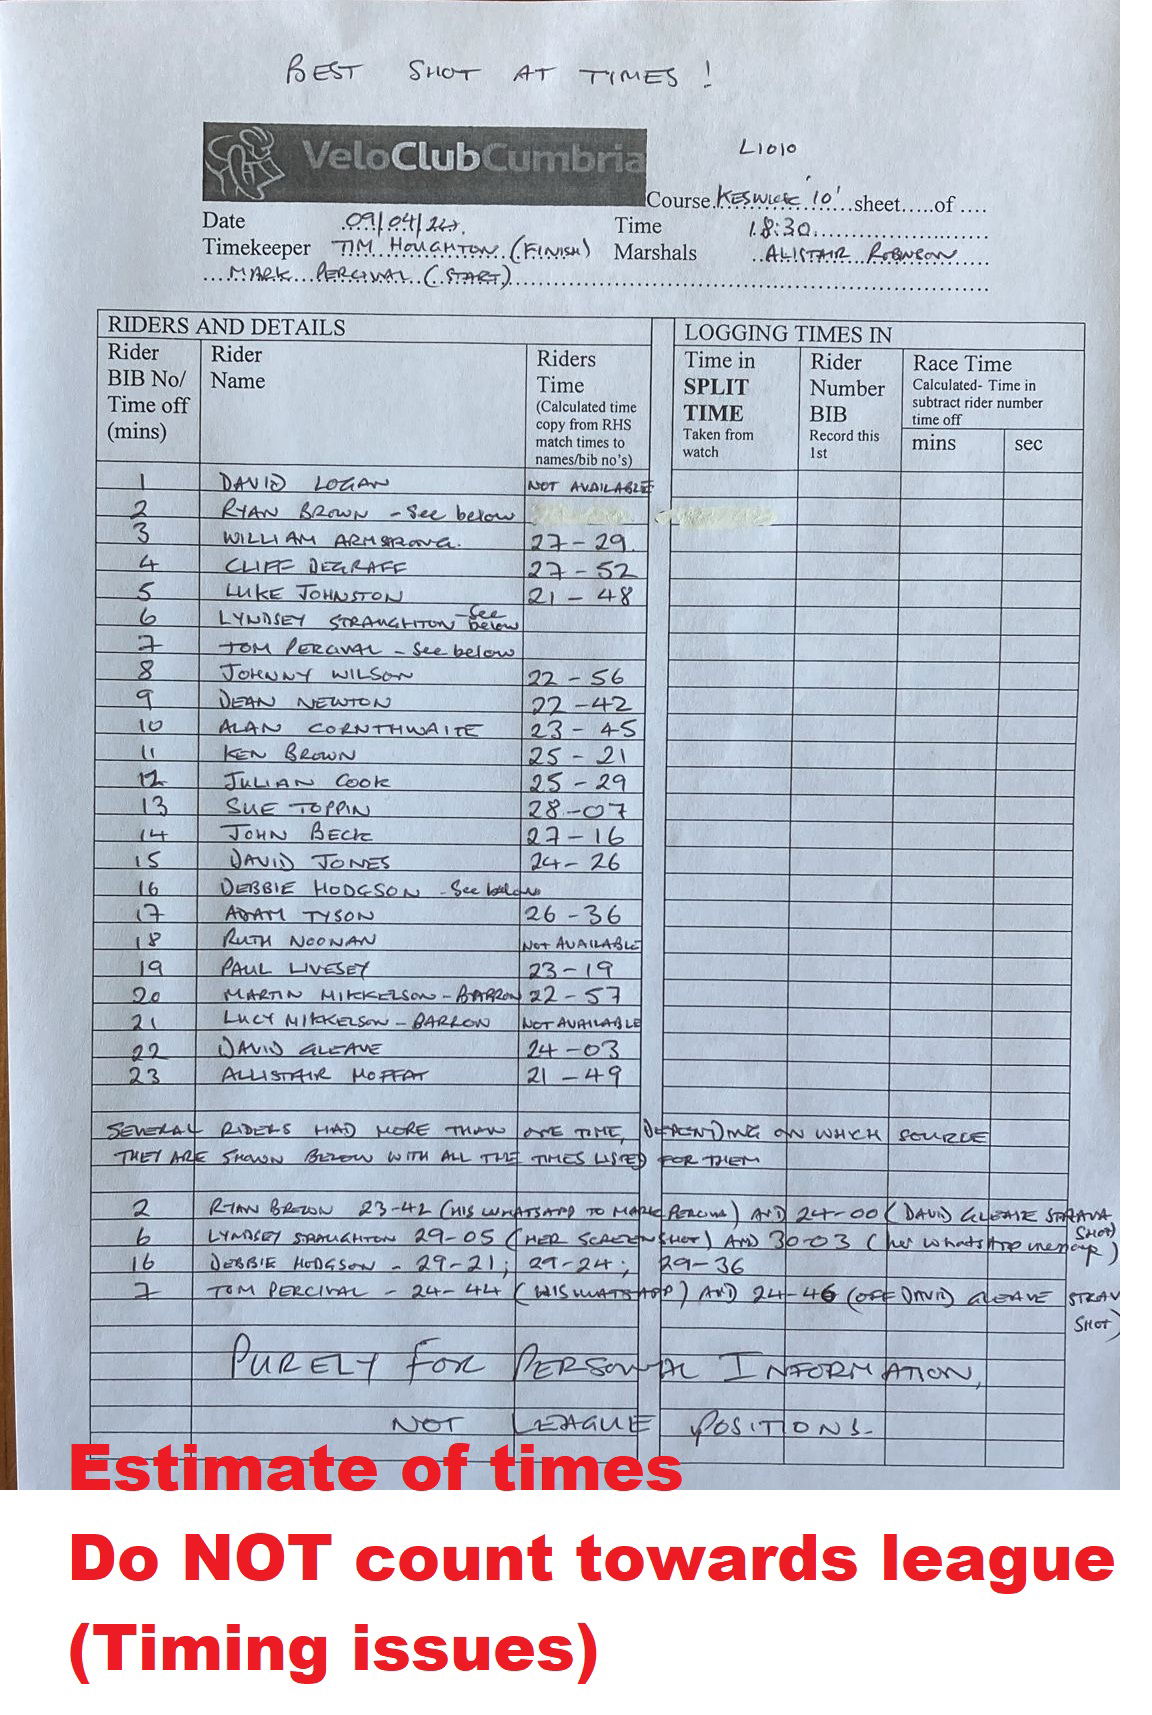 BEST SHOT AT TIMES!
VeloClubCumbria
L1010
Course. KESWICK '10' ..sheet.....of ....
Date 09/04/24. Time 18:30
Timekeeper TIM HOUGHTON (FINISH) Marshals ALISTAIR ROBINSON
MARK PERCIVAL (START)
RIDERS AND DETAILS
LOGGING TIMES IN
Rider BIB No/ Time off (mins)
Rider Name
Riders Time (Calculated time copy from RHS match times to names/bib no's)
Time in SPLIT TIME Taken from watch
Rider Number BIB Record this 1st
Race Time Calculated- Time in subtract rider number time off
mins sec
1 DAVID LOGAN NOT AVAILABLE
2 RYAN BROWN - See below
3 WILLIAM ARMSTRONG. 27-29.
4 CLIFF DEGRAFF 27-52
5 LUKE JOHNSTON 21-48
6 LYNDSEY STRAUGHTON - See below
7 TOM PERCIVAL - See below
8 JOHNNY WILSON 22-56
9 DEAN NEWTON 22-42
10 ALAN CORNTHWAITE 23-45
11 KEN BROWN 25-21
12 JULIAN COOK 25-29
13 SUE TOPPIN 28-07
14 JOHN BECK 27-16
15 DAVID JONES 24-26
16 DEBBIE HODGSON - See below
17 ADAM TYSON 26-36
18 RUTH NOONAN NOT AVAILABLE
19 PAUL LIVESEY 23-19
20 MARTIN MIKKELSON-BARRON 22-57
21 LUCY MIKKELSON-BARRON NOT AVAILABLE
22 DAVID GLEAVE 24-03
23 ALLISTAIR MOFFAT 21-49
SEVERAL RIDERS HAD MORE THAN ONE TIME, DEPENDING ON WHICH SOURCE
THEY ARE SHOWN BELOW WITH ALL THE TIMES LISTED FOR THEM
2 RYAN BROWN 23-42 (HIS WHATSAPP TO MARK PERCIVAL) AND 24-00 (DAVID GLEAVE STRAVA SHOT)
6 LYNDSEY STRAUGHTON 29-05 (HER SCREENSHOT) AND 30-03 (her WhatsApp message)
16 DEBBIE HODGSON - 29-21; 29-24; 29-36
7 TOM PERCIVAL - 24-44 (HIS WHATSAPP) AND 24-46 (OFF DAVID GLEAVE STRAV SHOT)
PURELY FOR PERSONAL INFORMATION,
NOT LEAGUE POSITIONS.
Estimate of times
Do NOT count towards league
(Timing issues)